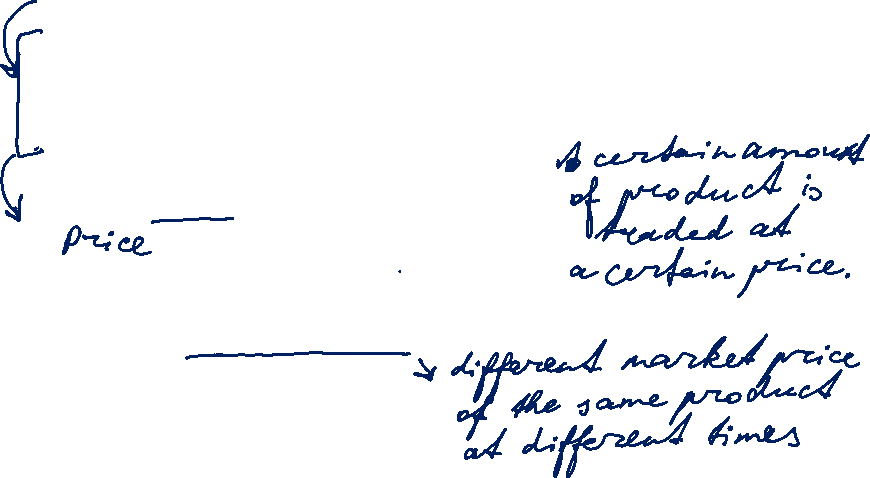 A certain amount
of product is
traded at
a certain price.
Price
different market price
of the same product
at different times